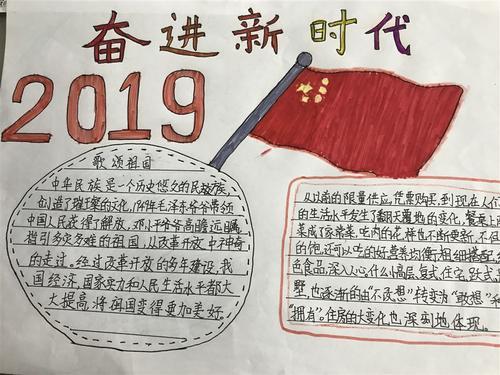 奋进新时代
2019
歌颂祖国
中华民族是一个历史悠久的民族
也创造了璀璨的文化,1949年毛泽东爷爷带领
中国人民获得了解放。邓小平爷爷高瞻远瞩
指引多灾多难的祖国,从改革开放中神奇
的走过。经过改革开放的多年建设,我
国经济、国家实力和人民生活水平都大
大提高,将祖国变得更加美好。
从以前的限量供应,凭票购买,到现在人们
的生活水平发生了翻天覆地的变化,餐桌上
菜成了家常菜。吃肉的花样也不断更新,不
的饱,还可以吃的好,营养均衡,粗细搭配,
色食品"深入人心。什么小高层、复式住宅、跃式、
墅,也逐渐的由"不敢想"转变为"敢想"和
"拥有"。住房的大变化也深刻地体现。